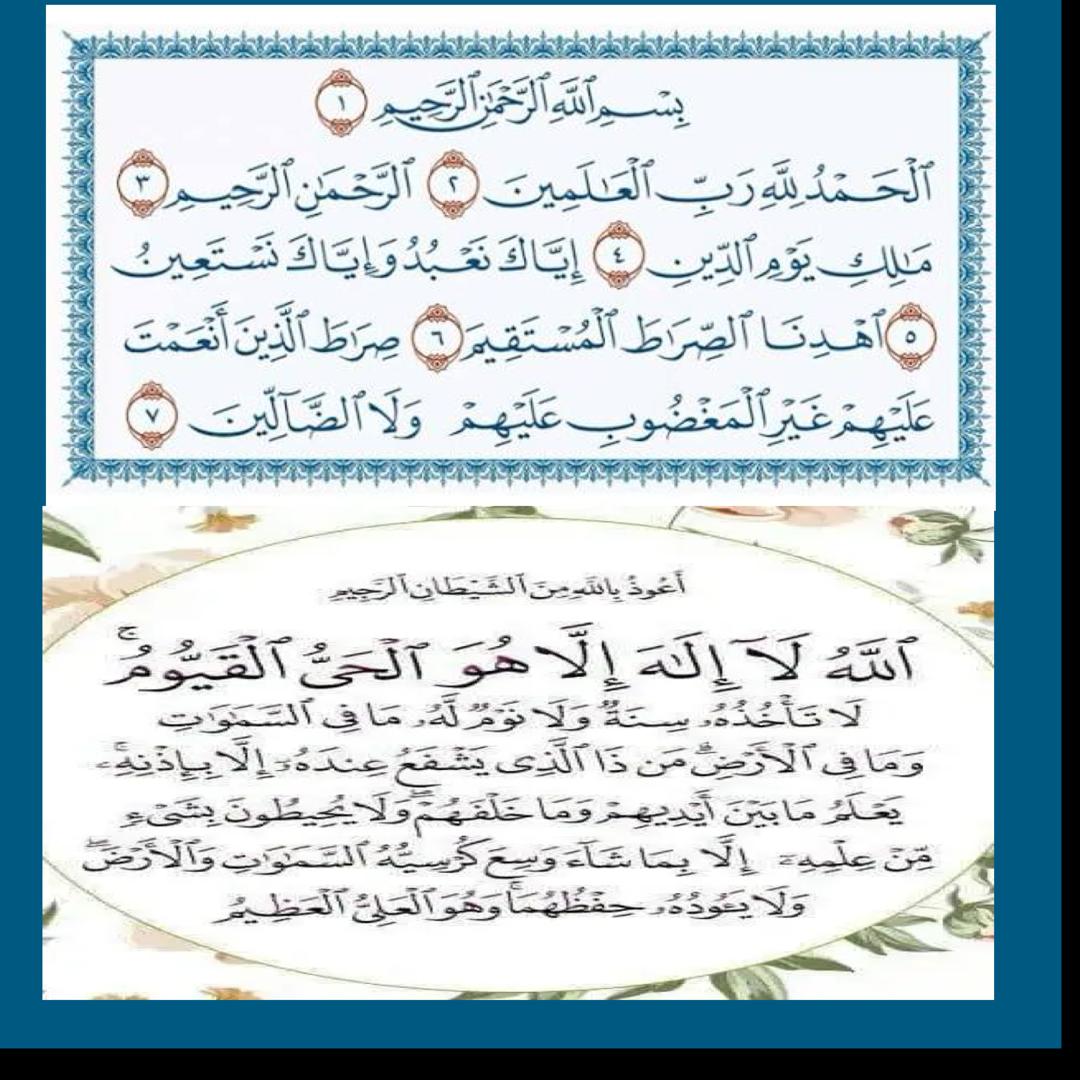 بِسْمِ ٱللَّهِ ٱلرَّحْمَٰنِ ٱلرَّحِيمِ ١
ٱلْحَمْدُ لِلَّهِ رَبِّ ٱلْعَٰلَمِينَ ٢ ٱلرَّحْمَٰنِ ٱلرَّحِيمِ ٣
مَٰلِكِ يَوْمِ ٱلدِّينِ ٤ إِيَّاكَ نَعْبُدُ وَإِيَّاكَ نَسْتَعِينُ
٥ ٱهْدِنَا ٱلصِّرَٰطَ ٱلْمُسْتَقِيمَ ٦ صِرَٰطَ ٱلَّذِينَ أَنْعَمْتَ
عَلَيْهِمْ غَيْرِ ٱلْمَغْضُوبِ عَلَيْهِمْ وَلَا ٱلضَّآلِّينَ ٧
أَعُوذُ بِٱللَّهِ مِنَ ٱلشَّيْطَانِ ٱلرَّجِيمِ
ٱللَّهُ لَآ إِلَٰهَ إِلَّا هُوَ ٱلْحَىُّ ٱلْقَيُّومُ ۚ
لَا تَأْخُذُهُۥ سِنَةٌ وَلَا نَوْمٌ لَّهُۥ مَا فِى ٱلسَّمَٰوَٰتِ
وَمَا فِى ٱلْأَرْضِ ۗ مَن ذَا ٱلَّذِى يَشْفَعُ عِندَهُۥٓ إِلَّا بِإِذْنِهِۦ ۚ
يَعْلَمُ مَا بَيْنَ أَيْدِيهِمْ وَمَا خَلْفَهُمْ ۖ وَلَا يُحِيطُونَ بِشَىْءٍ
مِّنْ عِلْمِهِۦٓ إِلَّا بِمَا شَآءَ ۚ وَسِعَ كُرْسِيُّهُ ٱلسَّمَٰوَٰتِ وَٱلْأَرْضَ ۖ
وَلَا يَـُٔودُهُۥ حِفْظُهُمَا ۚ وَهُوَ ٱلْعَلِىُّ ٱلْعَظِيمُ